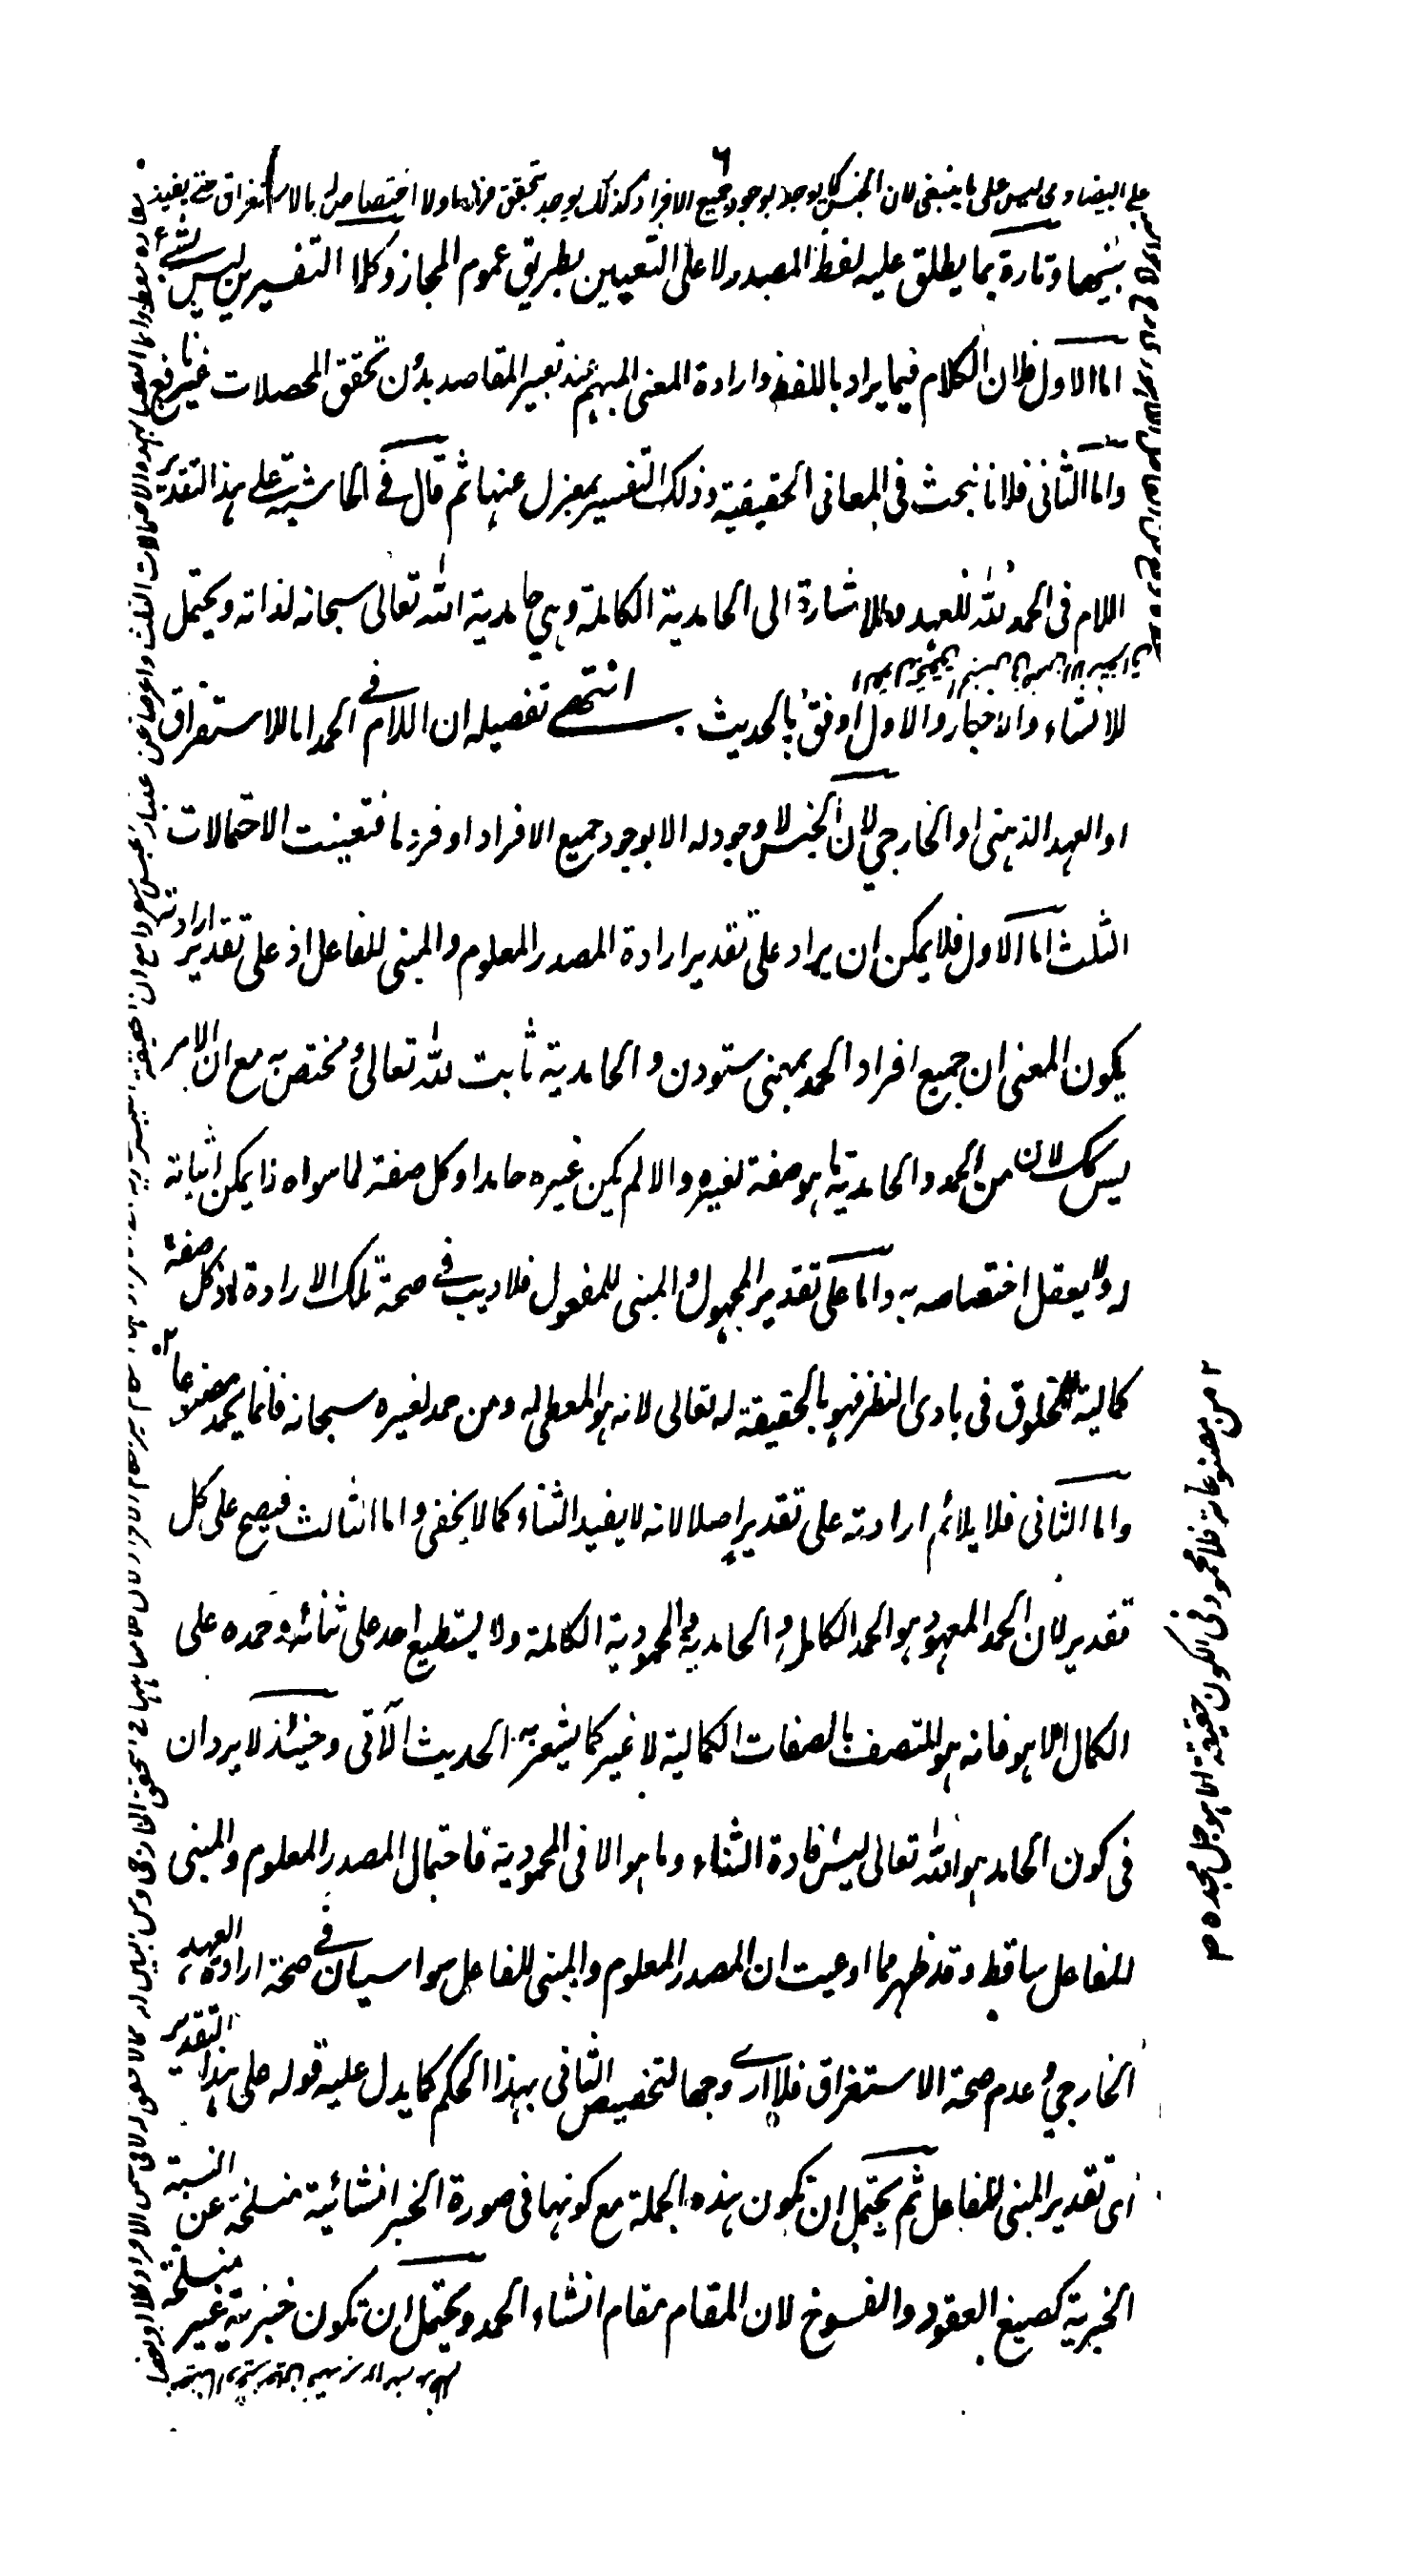 ٦
على البيضاوى ليس على ما ينبغى لان الجنس كما يوجد بوجود جميع الافراد كذلك يوجد بتحقق فرد ما ولا اختصاص له بالاستغراق حتى يفيد
بينهما وتارة بما يطلق عليه لفظ المصدر لا على التعيين بطريق عموم المجاز وكلا التفسيرين ليس بشئ
اما الاول فلان الكلام فيما يراد باللفظ وارادة المعنى المبهم عند تعبير المقاصد بدون تحقق المحصلات غير نافع
واما الثانى فلانا نبحث فى المعانى الحقيقية وذلك التفسير بمعزل عنها ثم قال فى الحاشية على هذا التقدير
اللام فى الحمد لله للعهد وللاشارة الى الحامدية الكاملة وهي حامدية الله تعالى سبحانه لذاته ويحتمل
للانشاء والاخبار والاول اوفق بالحديث انتهى تفصيله ان اللام فى الحمد اما للاستغراق
او العهد الذهنى او الخارجي لان الجنس لا وجود له الا بوجود جميع الافراد او فرد ما فتعينت الاحتمالات
الثلث اما الاول فلا يمكن ان يراد على تقدير ارادة المصدر المعلوم والمبنى للفاعل اذ على تقدير ارادته
يكون المعنى ان جميع افراد الحمد بمعنى ستودن والحامدية ثابت لله تعالى ومختص به مع ان الامر
ليس كك لان من الحمد والحامدية ما هو صفة لغيره والا لم يكن غيره حامدا وكل صفة لما سواه ذا يمكن اثباته
له ولا يعقل اختصاصه به واما على تقدير المجهول والمبنى للمفعول فلا ريب فى صحة تلك الارادة اذ كل صفة
كمالية للمخلوق فى بادى النظر فهو بالحقيقة له تعالى لانه هو المعطى له ومن حمد لغيره سبحانه فانما يحمد مصنوعا
واما الثانى فلا يلائم ارادته على تقدير اصلا لانه لا يفيد الثناء كما لا يخفى واما الثالث فيصح على كل
تقدير لان الحمد المعهود هو الحمد الكامل والحامدية والمحمودية الكاملة ولا يستطيع احد على ثنائه وحمده على
الكمال الا هو فانه هو المتصف بالصفات الكمالية لا غير كما يشعر به الحديث الآتى وحينئذ لا يرد ان
فى كون الحامد هو الله تعالى ليس افادة الثناء وما هو الا فى المحمودية فاحتمال المصدر المعلوم والمبنى
للفاعل ساقط وقد ظهر مما اوعيت ان المصدر المعلوم والمبنى للفاعل سواسيان فى صحة ارادة العهد
الخارجي وعدم صحة الاستغراق فلا ارى وجها لتخصيص الثانى بهذا الحكم كما يدل عليه قوله على هذا التقدير
اى تقدير المبنى للفاعل ثم يحتمل ان تكون هذه الجملة مع كونها فى صورة الخبر انشائية منسلخة عن النسبة
الخبرية كصيغ العقود والفسوخ لان المقام مقام انشاء الحمد ويحتمل ان تكون خبرية غير منسلخة
٢ من مصنوعاته فلا محمود فى الكون حقيقة الا هو جل مجده م